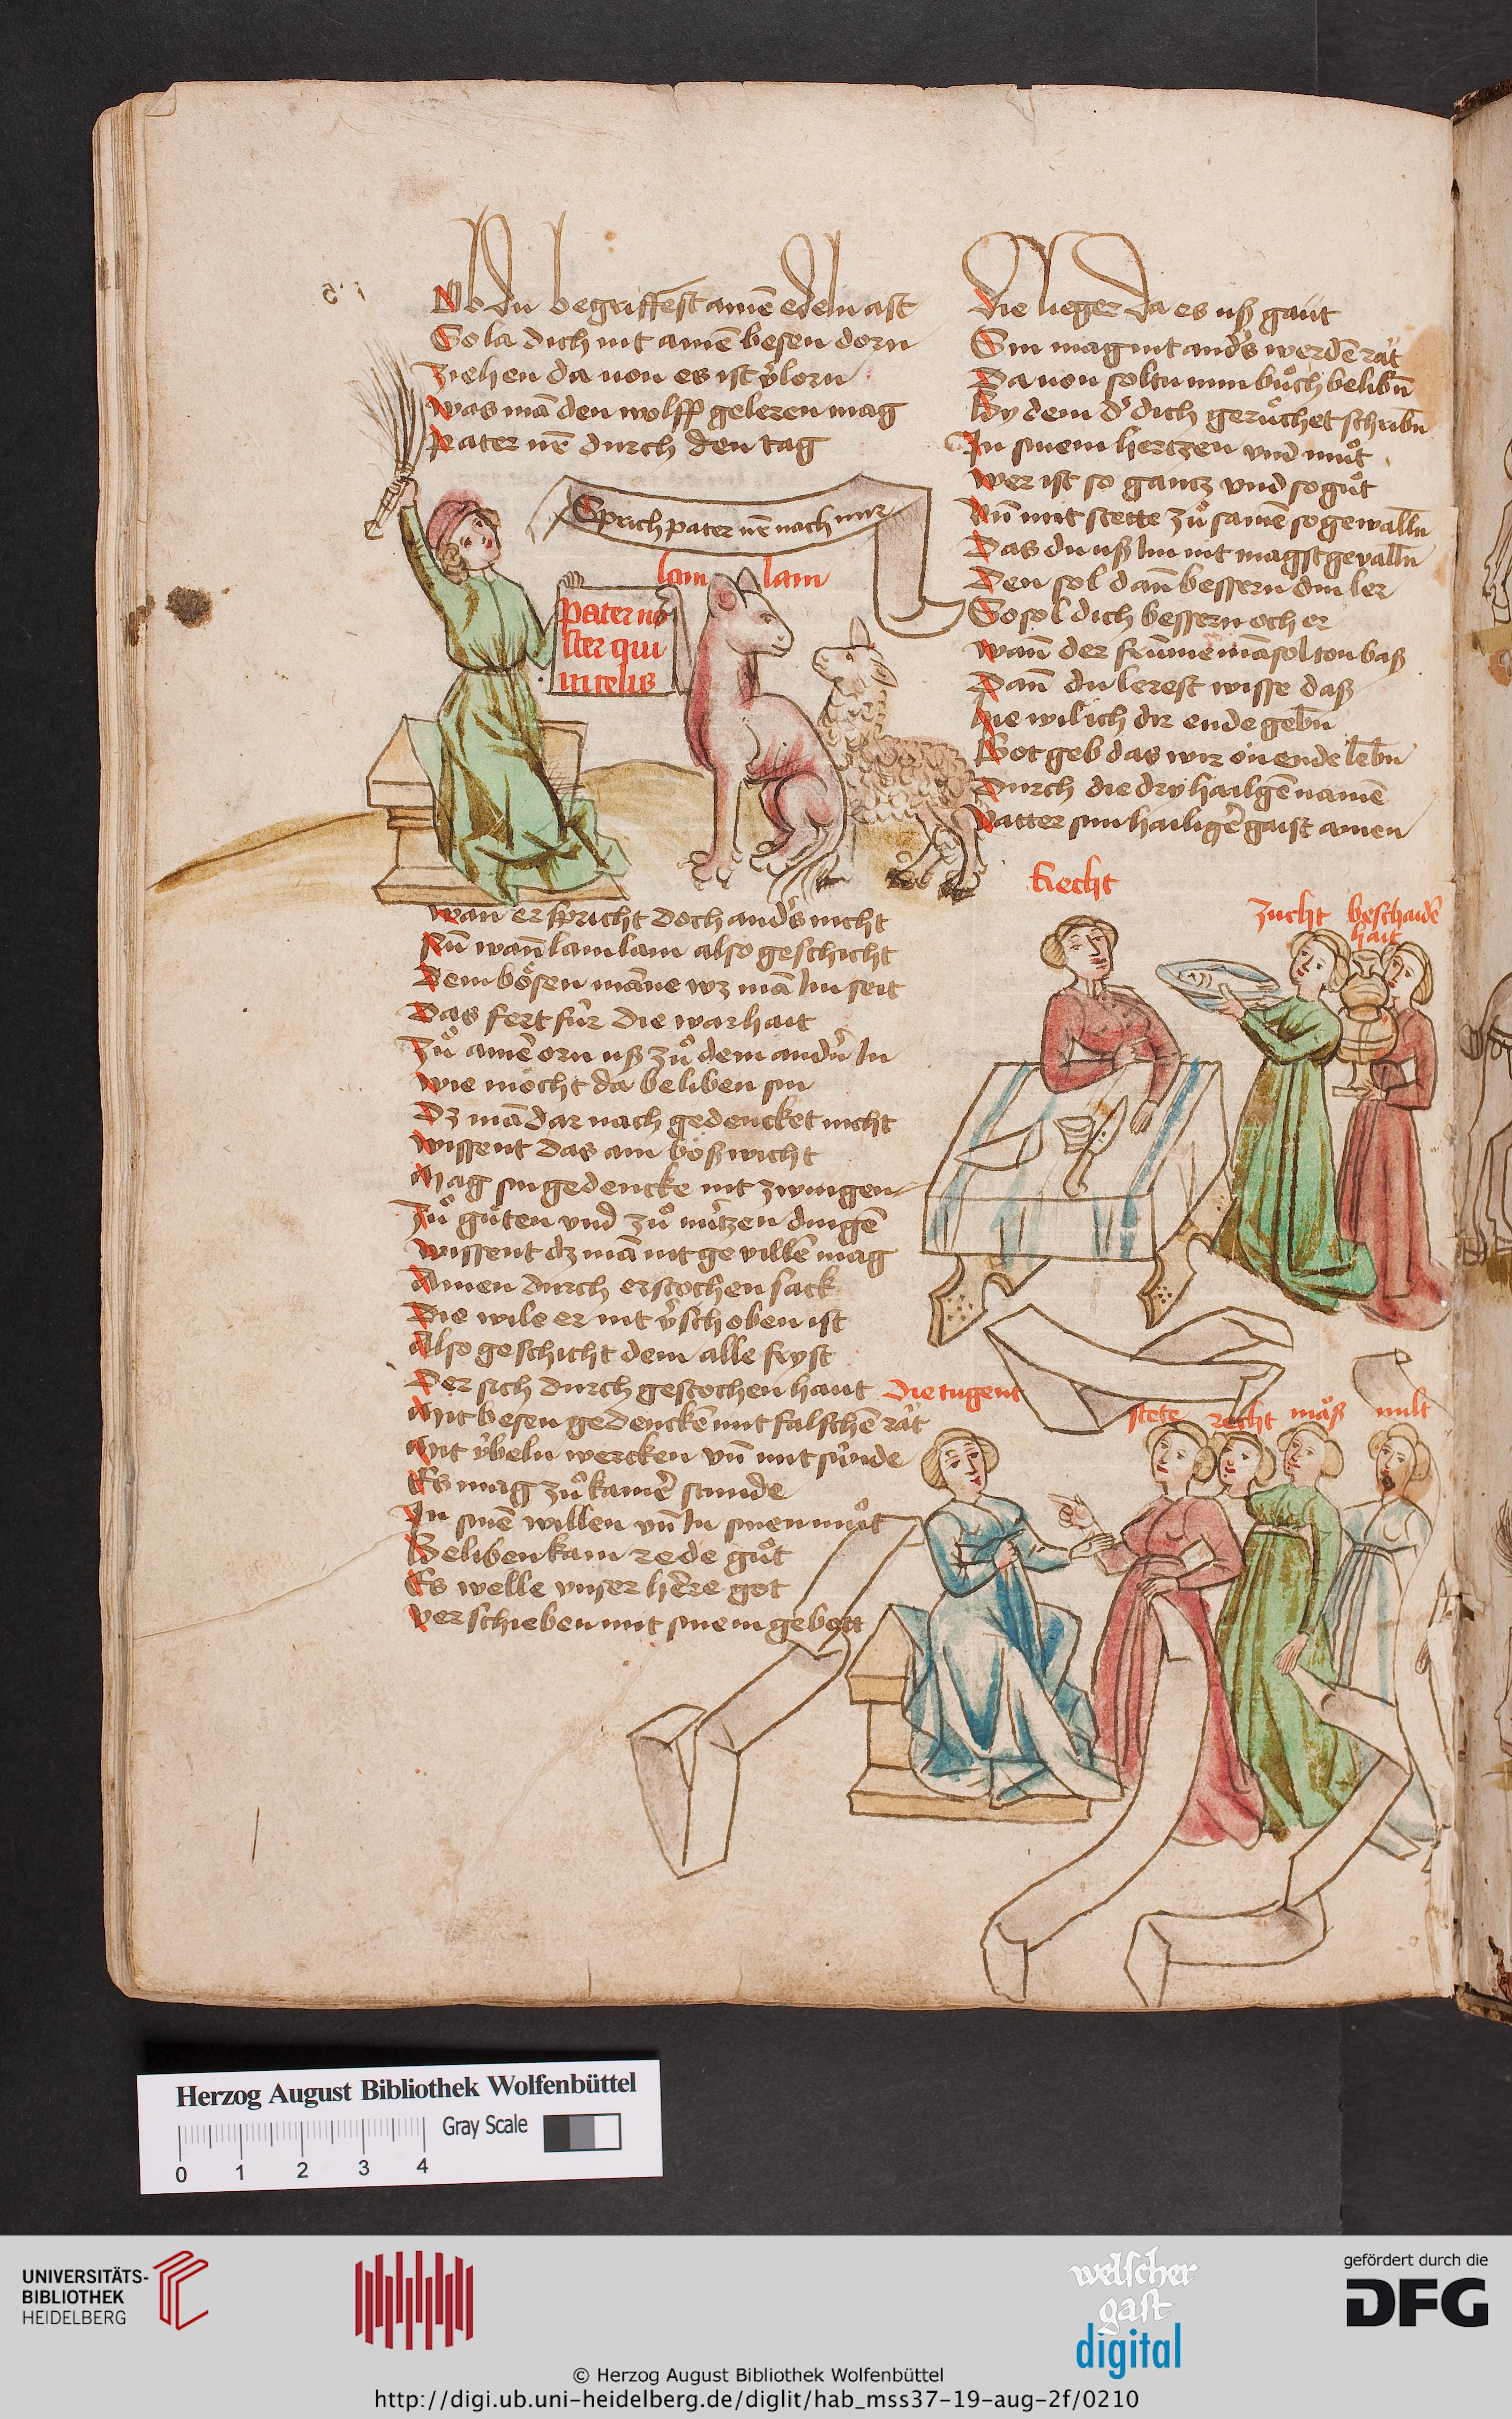 Ob du begriffest ainē edeln ast
So la dich nit ainē besen dorn
Ziehen da von es ist v͛lorn
Was mā den wolff geleren mag
Pater nr̄ durch den tag
Sprich pater nr̄ nach mir
lam lam
pater no
ster qui
in celis
Wan er spricht doch and͛s nicht
Nū wan̄ lam lam also geschicht
Dem bösen māne wz mā im seit
Das fert für die warhait
Zuͦ ainē orn uß zuͦ dem andn͛ in
Wie möcht da beliben sin
Dz mā dar nach gedencket nicht
Wissent das ain bößwicht
Mag sin gedencke nit zwingen
Zuͦ guͦten und zuͦ nützen dingē
Wissent dz mā nit gevillē mag
Ainen durch erstochen sack
Die wile er nit v͛schoben ist
Also geschicht dem alle fryst
Der sich durch gestochen haut
Mit besen gedenckē mit falschē rät
Mit übeln wercken un̄ mit sünde
Es mag zuͦ kainer͛ stunde
In sinē willen un̄ in sinen muͦt
Beliben kain rede guͦt
Es welle unser herre got
Verschieben mit sinem gebott
Die lieger da es uß gaut
Sin mag nit and͛s werdē rät
Da von soltu min buͦch belibn̄
By dem d͛ dich geruͦchet schribn̄
In sinem hertzen und muͦt
Wer ist so gantz und so guͦt
Un̄ mit stette zuͦ samē so gewalln̄
Das du uß im nit magst gevalln̄
Den sol dan̄ bessern din ler
So sol dich bessern och er
Wan̄ der frumē mā sol ton baß
Dan̄ du lerest wisse daß
Hie wil ich dir ende gebn̄
Got geb das wir on ende lebn̄
Durch die dry hailgē namē
Vatter sun hailiger͛ gaist amen
Recht
zucht beschaidē
hait
Die tugent
stete recht mäß milt
Herzog August Bibliothek Wolfenbüttel
Gray Scale
0 1 2 3 4
UNIVERSITÄTS-
BIBLIOTHEK
HEIDELBERG
welscher
gast
digital
gefördert durch die
DFG
© Herzog August Bibliothek Wolfenbüttel
http://digi.ub.uni-heidelberg.de/diglit/hab_mss37-19-aug-2f/0210